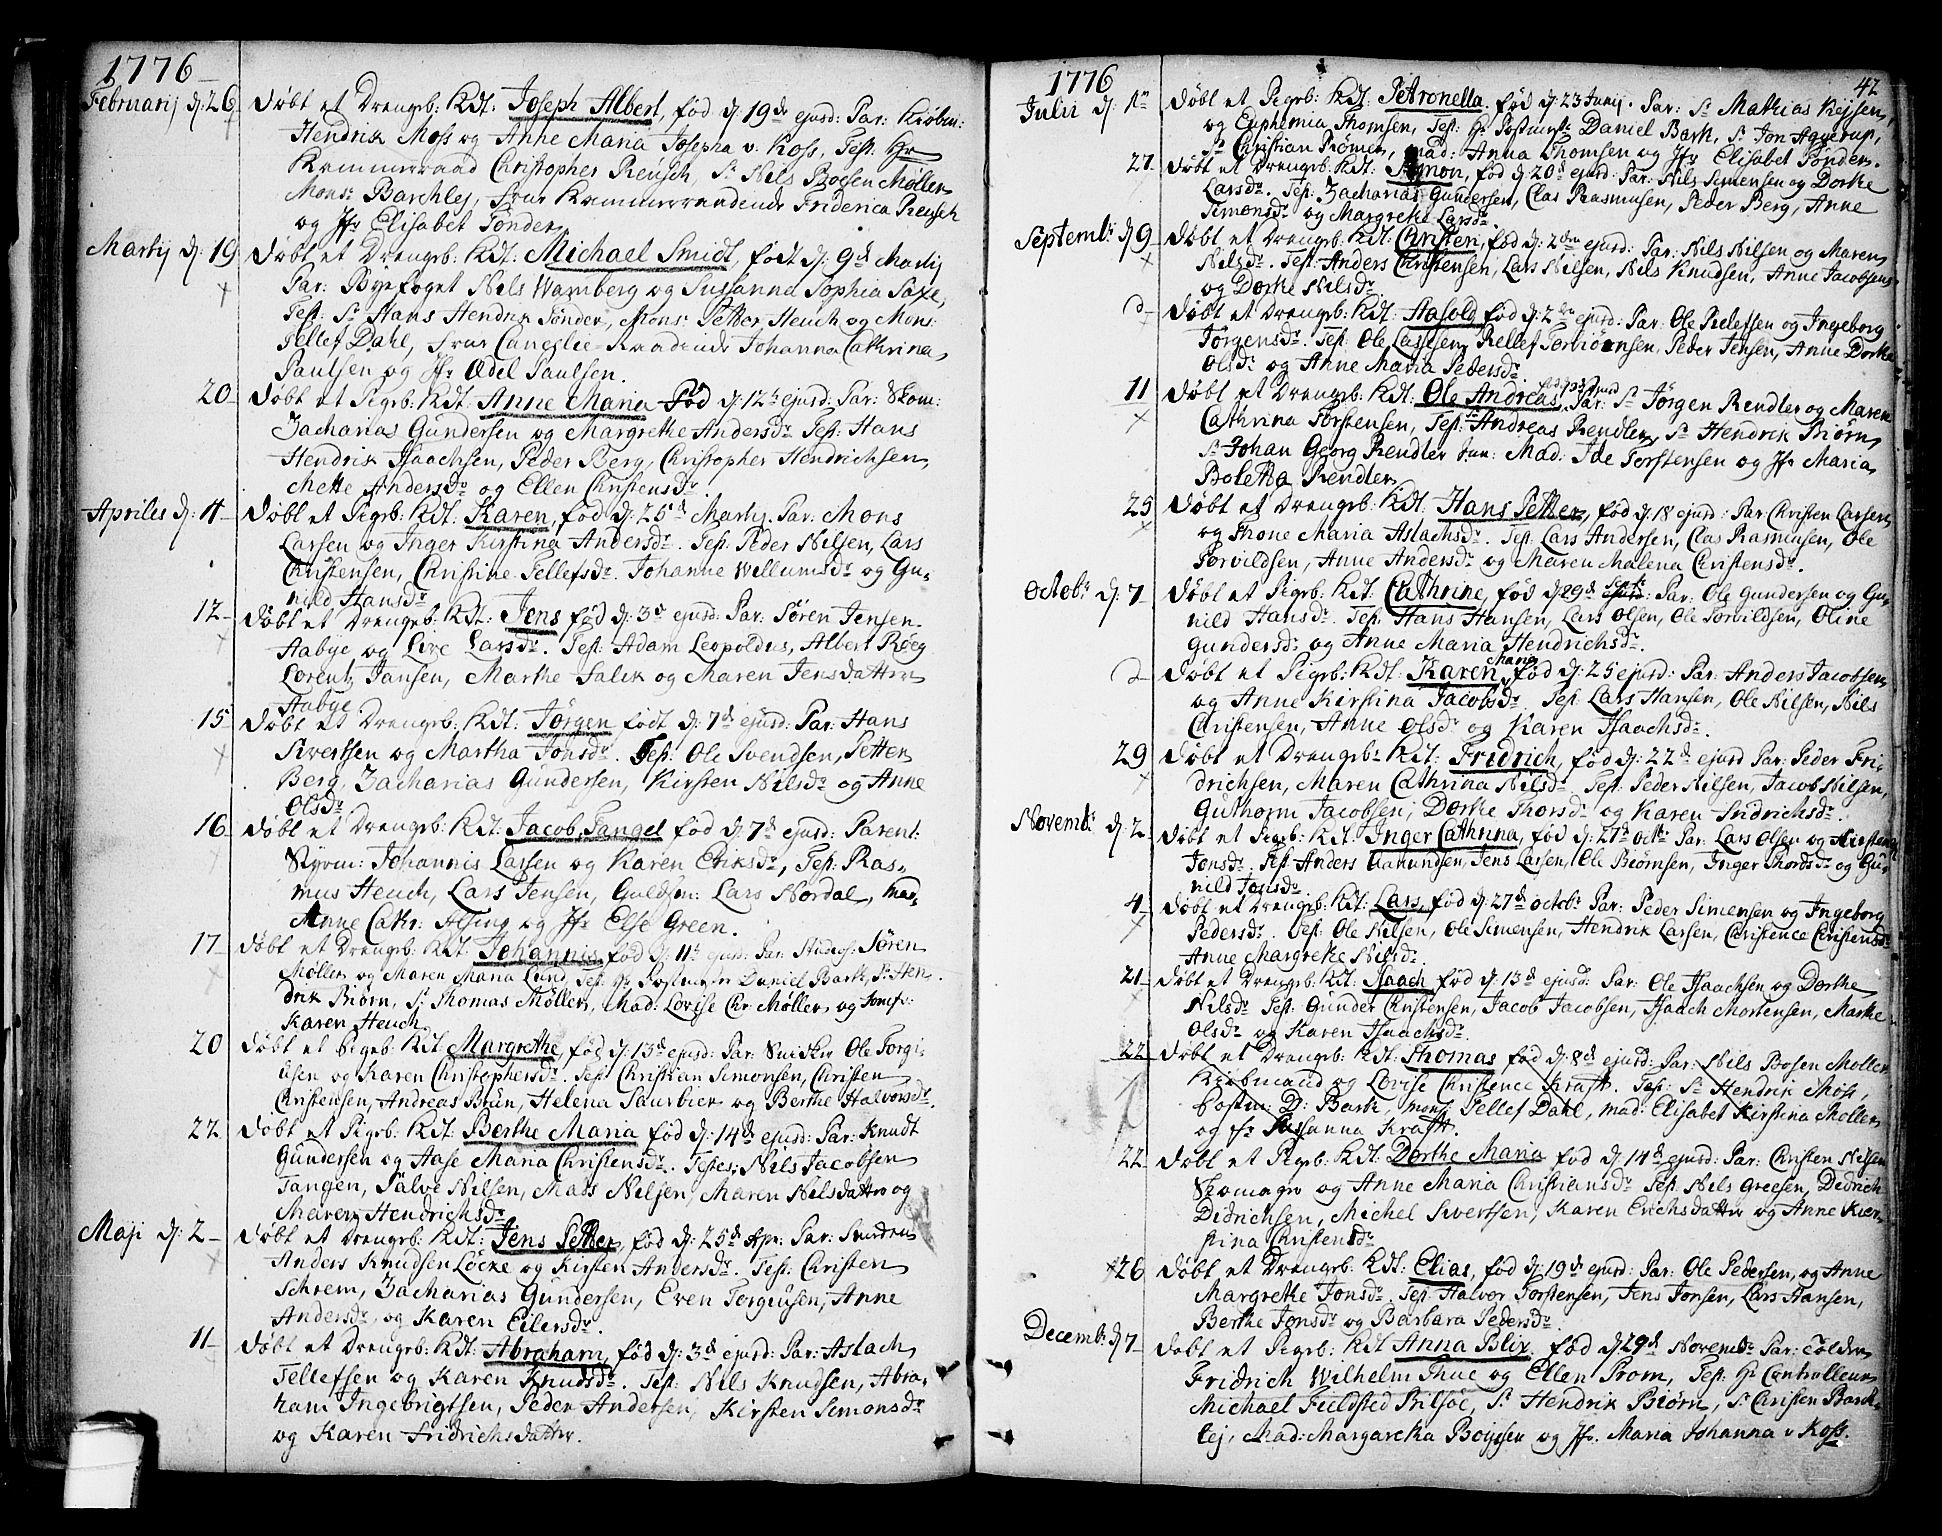 1776
Februarij d: 26 Døbt et Drengeb: Kdt: Joseph Albert, fød d: 19de ejusd: Par: Kiøbm:
Hendrik Moss og Anne Maria Josepha v. Koss, Test: Hr
Kammerraad Christopher Reusch, Sr Nils Boesen Møller
Mons: Barchlej, Frue Kammerraadinde Friderica Reusch
og Jfr Elisabet Tønder.
Martij d: 19 Døbt et Drengeb: Kdt: Michael Smidt, født d: 9d Martij
Par: Byefoget Nils Wamberg og Susanna Sophia Saxe,
Test: Sr Hans Hendrik Tønder, Mons: Petter Heuch og Mons:
Tellef Dahl, Frue Cancelie-Raadinde Johanna Cathrina
Paulsen og Jfr Ædel Paulsen.
20 Døbt et Pigeb: Kdt: Anne Maria fød d: 12te ejusd: Par: Skom:
Zacharias Gundersen og Margrethe Andersdr Test: Hans
Hendrik Isaachsen, Peder Berg, Christopher Hendrichsen,
Mette Andersdr og Ellen Christensdr.
Aprilis d: 11 Døbt et Pigeb: Kdt: Karen, fød d: 25d Martij. Par: Mons
Larsen og Inger Kirstina Andersdr. Test: Peder Nilsen, Lars
Christensen, Christine Tellefsdr. Johanne Willumsdr og Gu-
nild Hansdr
12 Døbt et Drengeb: Kdt: Jens fød d: 3d ejusd: Par: Søren Jensen
Aabye og Live Larsdr. Test: Adam Leopoldus, Albert Røeg
Lorentz Jansen, Marthe Falck og Maren Jensdatter
Aabye
15 Døbt et Drengeb: Kdt: Jørgen født d: 7d ejusd: Par: Hans
Sivertsen og Martha Jonsdr. Test: Ole Svendsen, Petter
Berg, Zacharias Gundersen, Kirsten Nilsdr og Anne
Olsdr
16 Døbt et Drengeb: Kdt: Jacob Tangel fød d: 7d ejusd: Parent:
Styrm: Johannis Larsen og Karen Eriksdr, Test: Ras-
mus Heuch, Lars Jensen, Guldsm: Lars Nordal, Mad
Anne Cathr: Alsing og Jfr Else Green.
17 Døbt et Drengeb: Kdt: Johannis fød d: 11te ejusd: Par: Studios: Søren
Møller og Maren Maria Lund, Test: Hr Postmester Daniel Bark, Sr Hen-
drik Biørn, Sr Thomas Møller, Mad: Lovise Chr: Møller, og Jomfr:
Karen Heuch
20 Døbt et Pigeb: Kdt Margrethe, fød d: 13d ejusd: Par: Snidker Ole Torgi-
usen og Karen Christophersdr. Test: Christian Simonsen, Christen
Christensen, Andreas Brun, Helena Saurbier og Berthe Halvorsdr.
22 Døbt et Pigeb: Kdt: Berthe Maria fød d: 14d ejusd: Par: Knudt
Gundersen og Aase Maria Christensdr. Testes: Nils Jacobsen
Tangen, Salve Nilsen, Mads Nilsen, Maren Nilsdatter og
Maren Hendrichsdr
Maji d: 2 Døbt et Drengeb: Kdt: Jens Petter, fød d: 25d Apr: Par:
Anders Knudsen Löcke og Kirsten Andersdr. Test: Christen
Schrem, Zacharias Gundersen, Even Torgiusen, Anne
Andersdr, og Karen Eilersdr.
11 Døbt et Drengeb: Kdt: Abraham, fød d: 3d ejusd: Par: Aslach
Tellefsen og Karen Knudsdr. Test: Nils Knudsen, Abra-
ham Ingebrigtsen, Peder Andersen, Kirsten Simonsdr
og Karen Fridrichsdatter.
42
1776
Julii d: Døbt et Pigeb: Kdt: Petronella fød d: 23 Junij. Par: Sr Mathias Kejsen,
og Euphemia Thomsen, Test: Hr Postmestr Daniel Bark, Sr Jon Agerup,
Sr Christian Rømer, Mad: Anna Thomsen og Jfr Elisabet Tønder.
27 Døbt et Drengeb: Kdt: Simon, fød d: 20d ejusd: Par: Nils Simensen og Dorthe
Larsdr. Test: Zacharias Gundersen, Clas Rasmusen, Peder Berg, Anne
Simonsdr og Margrethe Larsdr.
Septembr d: 9 Døbt et Drengeb: Kdt: Christen, fød d: 2den ejusd: Par: Nils Nilsen og Maren
Nilsdr. Test: Anders Christensen, Lars Nilsen, Nils Knudsen, Anne Jacobsdr
og Dorthe Nilsdr
d Døbt et Drengeb: Kdt: Aasold fød d: 2den ejusd: Par: Ole Pellefsen og Ingeborg
Jørgensdr. Test: Ole Lassesen, Rellef Torbiønsen, Peder Jensen, Anne Dorthe
Olsdr og Anne Maria Pedersdr
11 Døbt et Drengeb: Kdt: Ole Andreas, Par: Sr Jörgen Rendler og Maren
Cathrina Torstensen, Test: Sr Andreas Rendler, Sr Hendrik Biørn,
Sr Johan Georg Rendler Jun: Mad: Ide Torstensen og Jfr Maria
Boletha Rendler.
25 Døbt et Drengeb: Kdt: Hans Petter, fød d: 18 ejusd: Par Christen Larsen
og Thone Maria Aslachsdr. Test: Lars Andersen, Clas Rasmusen, Ole
Torvildsen, Anne Andersdr og Maren Malena Christensdr.
Octobr d: 7 Døbt et Pigeb: Kdt: Cathrine, fød d: 29d Sept: Par: Ole Gundersen og Gu-
nild Hansdr. Test: Hans Hansen, Lars Olsen, Ole Torvildsen, Oline
Gundersdr og Anne Maria Hendrichsdr.
d Døbt et Pigeb: Kdt: Karen Maria, fød d: 25 ejusd: Par: Anders Jacobsen
og Anne Kirstina Jacobsdr Test: Lars Hansen, Ole Nilsen, Nils
Christensen, Anne Olsdr og Karen Isaachsdr.
29 Døbt et Drengeb: Kdt: Fridrich, fød d: 22d ejusd Par: Peder Fri-
drichsen, Maren Cathrina Nilsdr Test: Peder Nilsen, Jacob Nilsen,
Guthorm Jacobsen, Dorthe Thorsdr og Karen Indrichsdr.
Novembr d: 2 Døbt et Pigeb: Kdt: Inger Cathrina, fød d: 27d octbr Par: Lars Olsen og Kirsten
Jonsdr. Test Anders Aamundsen, Jens Larsen, Ole Biörnsen, Inger Thordsdr og Gu-
nild Jonsdr.
4 Døbt et Drengeb: Kdt: Lars, fød d: 27d octobr Par: Peder Simensen og Ingeborg
Pedersdr. Test: Ole Nilsen, Ole Simensen, Hendrik Larsen, Christence Christensdr
Anne Margrethe Nilsdr.
21 Døbt et Drengeb: Kdt: Isaach fød d: 13d ejusd. Par: Ole Isaachsen og Dorthe
Nilsdr Test: Gunder Christensen, Jacob Jacobsen, Isaach Mortensen, Marthe
Olsdr og Karen Isaachsdr.
22 Døbt et Drengeb: Kdt: Thomas fød d: 8d ejusd: Par: Nils Bosen Møller
Kiøbmand og Lovise Christence Krafft. Test: Sr Hendrik Moss,
Postm: D: Bark, Mons Tellef Dahl, Mad: Elisabet Kirstina Møller
og Jfr Susanna Krafft.
22 Døbt et Pigeb: Kdt: Dorthe Maria fød d: 14d ejusd: Par: Christen Nilsen
Skomager og Anne Maria Christiansdr Test: Nils Greesen, Didrich
Didrichsen, Michel Sivertsen, Karen Erichsdatter og Anne Kier-
stina Christensdr
26 Døbt et Drengeb: Kdt: Elias, fød d: 19de ejusd: Par: Ole Pedersen, og Anne
Margrethe Jonsdr. Test: Halvor Torstensen, Jens Jonsen, Lars Hansen,
Berthe Jonsdr og Barbara Pedersdr.
Decembr d: 7 Døbt et Pigeb: Kdt Anna Blix fød d: 29d Novembr Par: Tolder
Fridrich Wilhelm Thue og Ellen Prom, Test: Hr Controlleur
Michael Feildsted Pilsöe, Sr Hendrik Biørn, Sr Christen Barch-
lej, Mad: Margaretha Boyesen og Jfr. Maria Johanna v Koss.